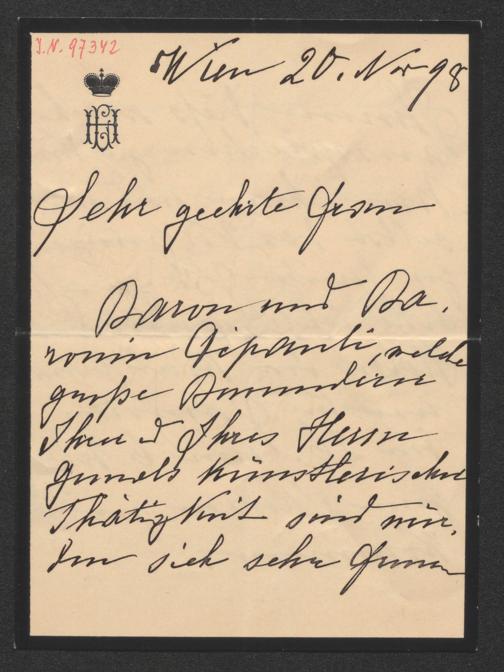 I.N. 97342
Wien 20. Nov 98
Sehr geehrte Frau
Baron und Ba-
ronin Gipanti, welche
große Bewunderer
Ihrer u Ihres Herrn
Gemals künstlerischer
Thätigkeit sind wür-
den sich sehr freuen